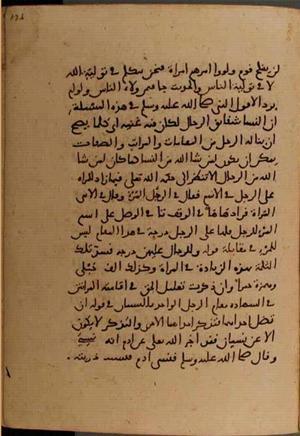 لن يفلح قوم ولوا امرهم امراة فنحن نتكلم في تولية الله
لا في تولية الناس والحديث جا فيمن ولاه الناس ولو لم
يرد الا قول النبي صلى الله عليه وسلم في هذه المسئلة
ان النسا شقايق الرجال لكان فيه غنية اي كلما يصح
ان يناله الرجل من المقامات والمراتب والصفات
يمكن ان يكون لمن شا الله من النسا كما كان لمن شا
الله من الرجال الا تنظر الى حكمة الله تعالى فيما زاد للمراة
على الرجل في الاسم فقال في الرجل المرء وقال في الانثى
المراة فزادها هاء في الوقف تاء في الوصل على اسم
المرء للرجل فلها على الرجل درجة في هذا المقام ليس
للمرء في مقابلة قوله وللرجال عليهن درجة فسد تلك
الثلمة بهذه الزيادة في المراة وكذلك الف حبلى
وهمزة حمرا وان ذكرت تعليل الحق في اقامة المراتين
في الشهادة مقام الرجل الواحد بالنسيان في قوله ان
تضل احداهما فتذكر احداهما الاخرى والتذكر لا يكون
الا عن نسيان فقد اخبر الله تعالى عن ادم انه نسي
وقال صلى الله عليه وسلم فنسي ادم فنسيت ذريته